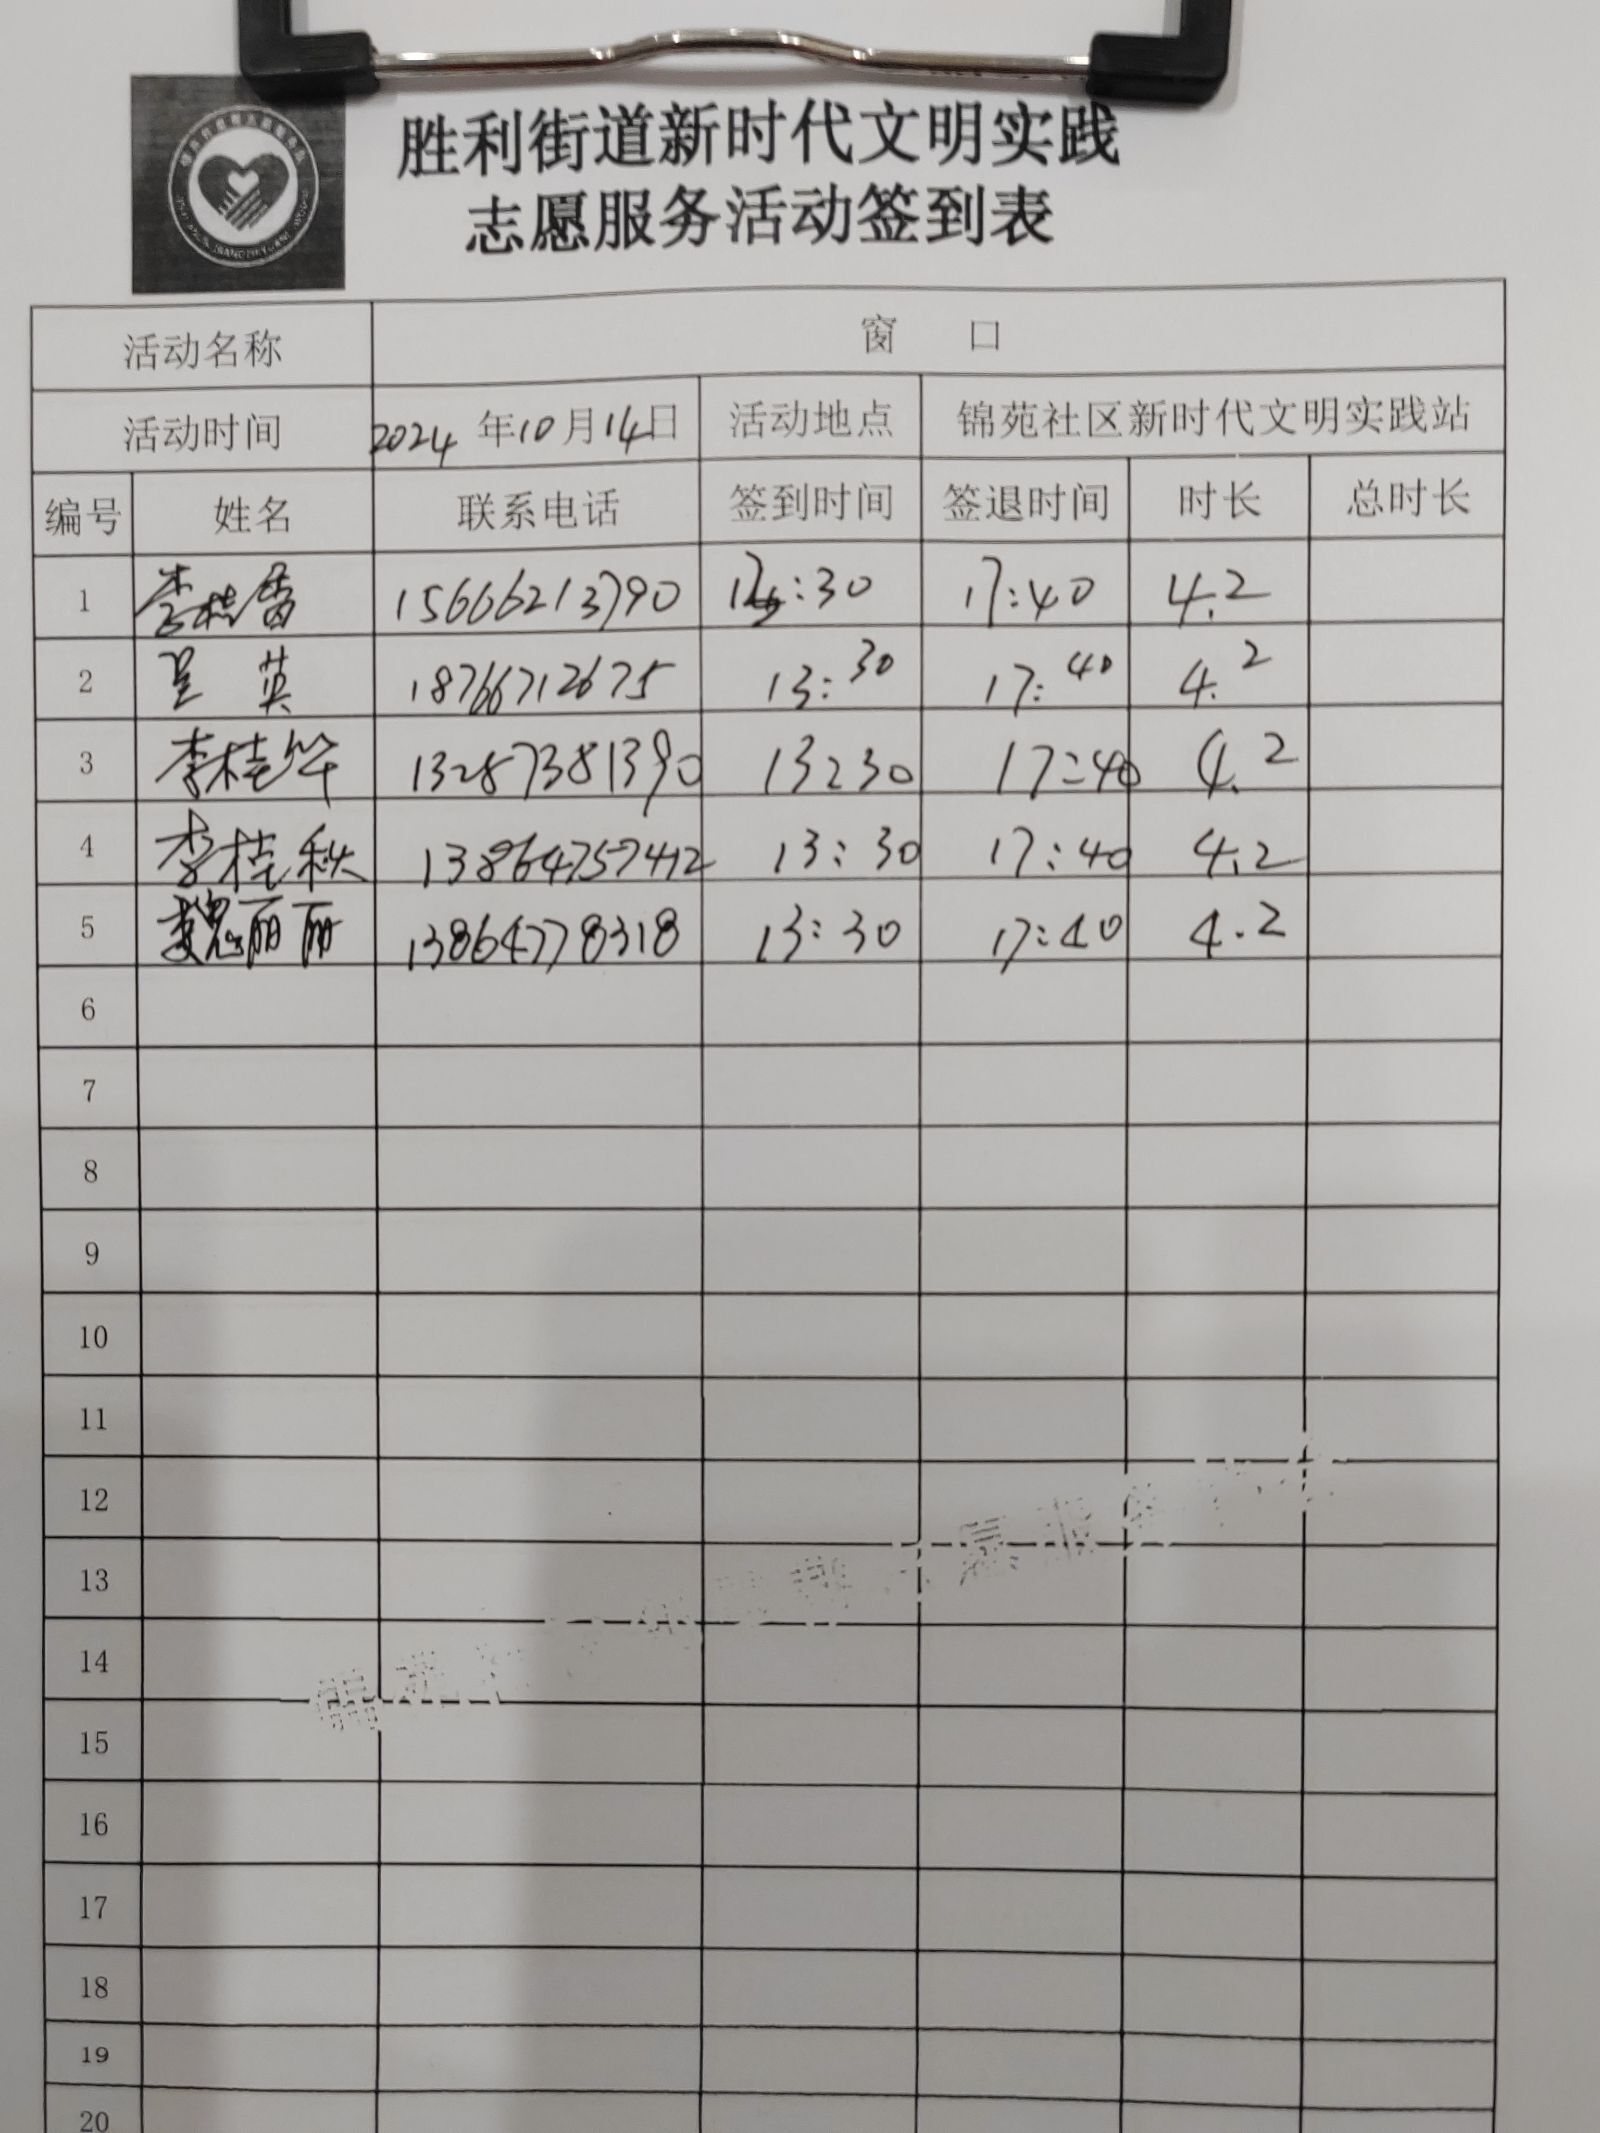 胜利街道新时代文明实践
志愿服务活动签到表
活动名称 窗 口
活动时间 2024 年10月14日 活动地点 锦苑社区新时代文明实践站
编号 姓名 联系电话 签到时间 签退时间 时长 总时长
1 李桂香 15666213790 :30 17:40 4.2
2 吴 英 18766712675 13:30 17:40 4.2
3 李桂华 13287381390 13:30 17:40 4.2
4 李桂秋 13864757412 13:30 17:40 4.2
5 魏丽丽 13864778318 13:30 17:40 4.2
6
7
8
9
10
11
12
13
14
15
16
17
18
19
20